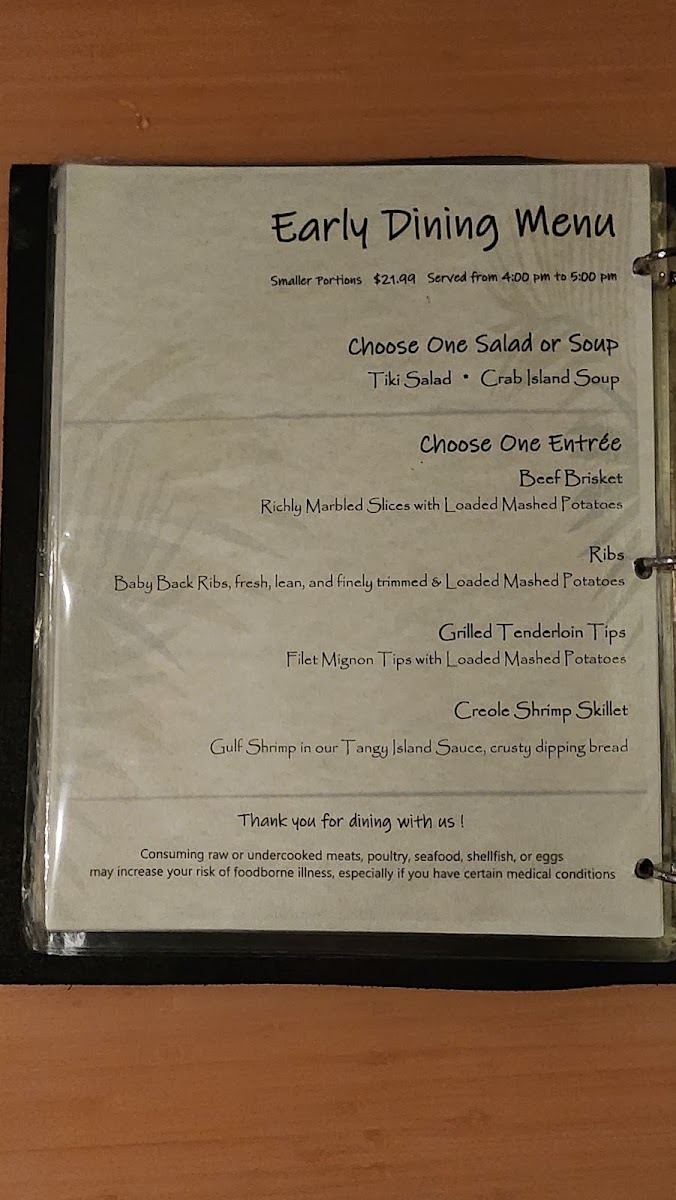 Early Dining Menu
Smaller Portions $21.99 Served from 4:00 pm to 5:00 pm
Choose One Salad or Soup
Tiki Salad • Crab Island Soup
Choose One Entrée
Beef Brisket
Richly Marbled Slices with Loaded Mashed Potatoes
Ribs
Baby Back Ribs, fresh, lean, and finely trimmed & Loaded Mashed Potatoes
Grilled Tenderloin Tips
Filet Mignon Tips with Loaded Mashed Potatoes
Creole Shrimp Skillet
Gulf Shrimp in our Tangy Island Sauce, crusty dipping bread
Thank you for dining with us !
Consuming raw or undercooked meats, poultry, seafood, shellfish, or eggs
may increase your risk of foodborne illness, especially if you have certain medical conditions